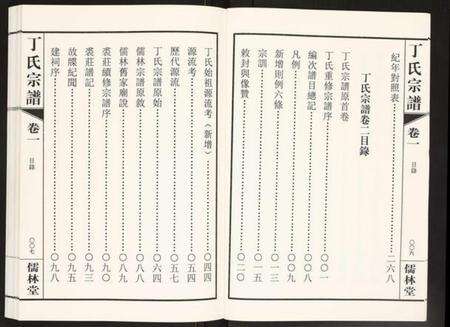 丁氏宗譜
卷一
目錄
〇〇六
儒林堂
紀年對照表 二六八
丁氏宗譜卷二目錄
丁氏宗譜原首卷
丁氏重修宗譜序 〇〇一
編次譜目總記 〇〇八
凡例 〇〇九
新增則例六條 〇一三
宗訓 〇一五
敕封與像贊 〇二〇
丁氏始祖源流考（新增） 〇四四
源流考 〇五四
歷代源流 〇五七
丁氏宗譜原始 〇六四
儒林宗譜原敘 〇八八
儒林舊家廟說 〇八九
裘莊續修宗譜序 〇九〇
裘莊譜記 〇九三
故牒紀聞 〇九五
建祠序 〇九八
丁氏宗譜
卷一
目錄
〇〇七
儒林堂